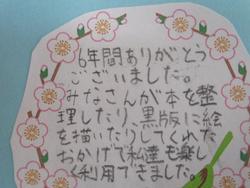 6年間ありがとう
ございました。
みなさんが本を整
理したり、黒版に絵
を描いたりしてくれた
おかげで私達も楽し
く利用できました。